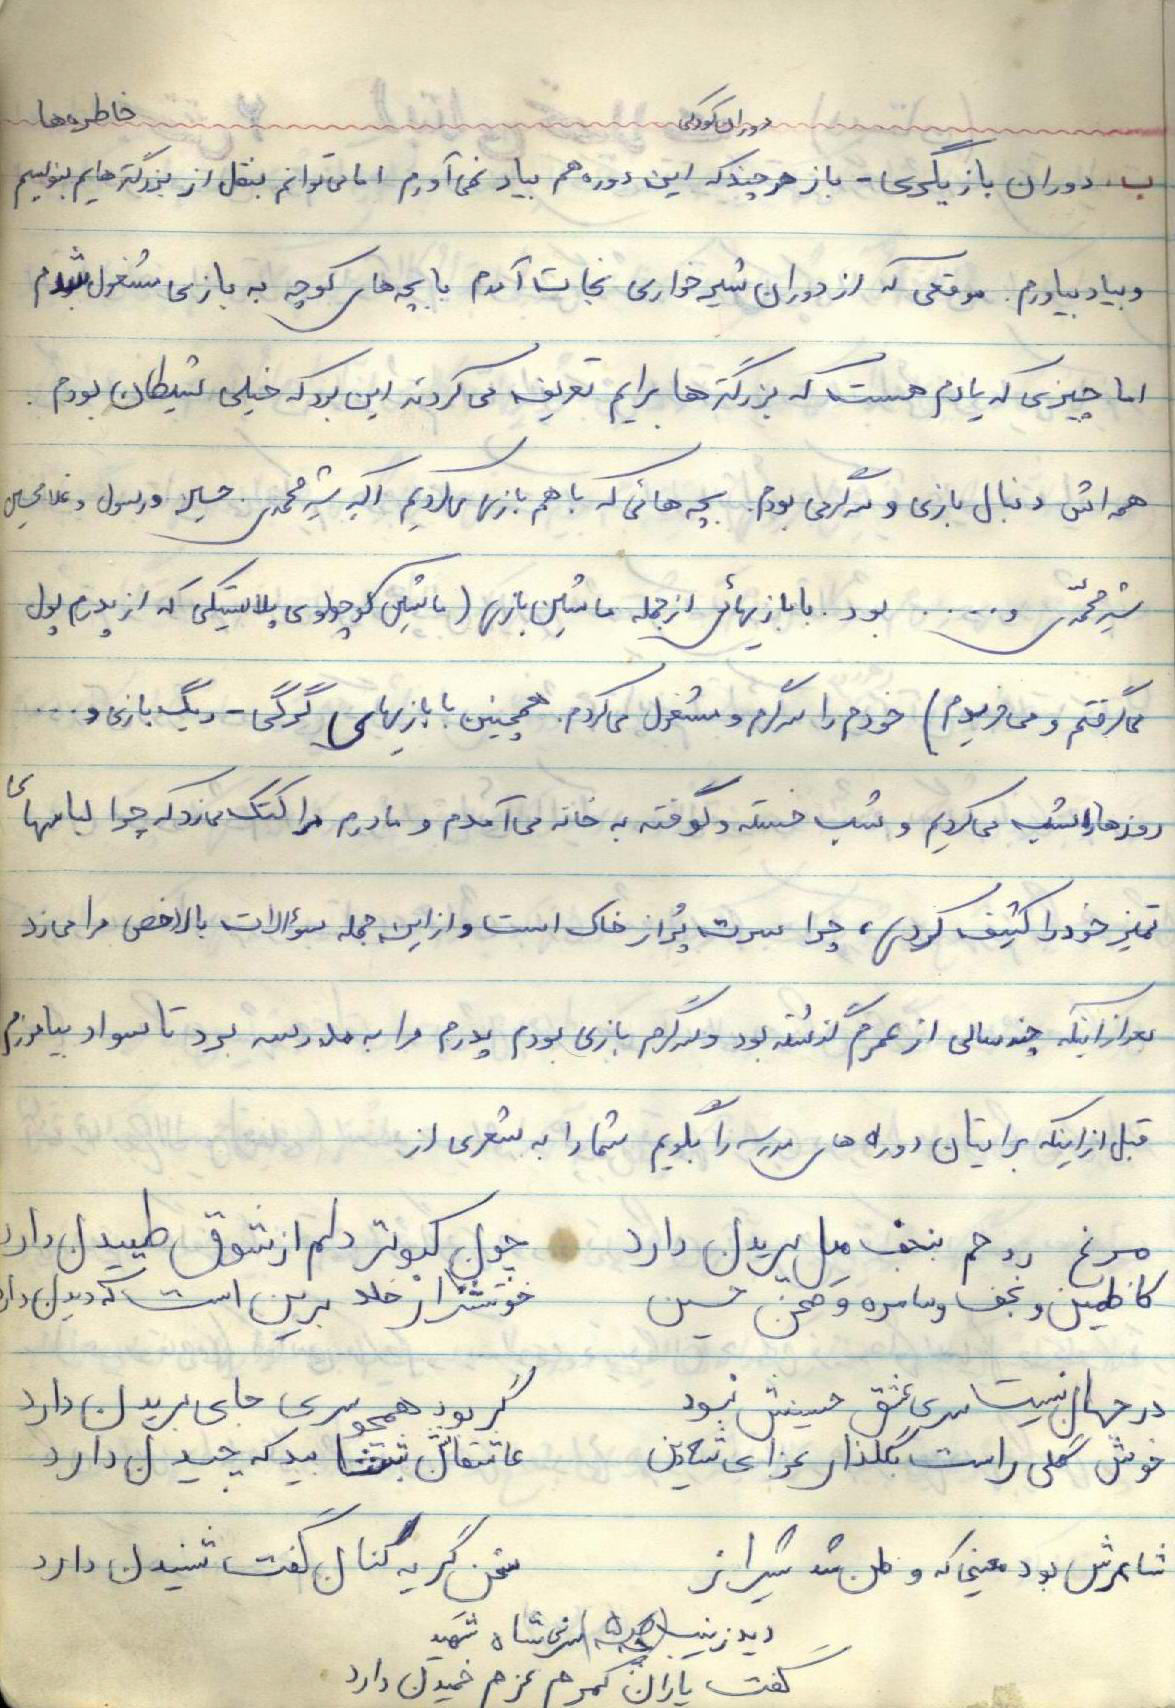 خاطره‌ها
دوران کودکی
ب. دوران بازیگری - باز هر چند که این دوره هم بیاد نمی‌آورم اما می‌توانم بنقل از بزرگترهایم بنویسم
و بیاد بیاورم. موقعی که از دوران شیرخواری نجات آمدم با بچه‌های کوچه به بازی مشغول شدم
اما چیزی که یادم هست که بزرگترها برایم تعریف می‌کردند این بود که خیلی شیطان بودم.
همه‌اش دنبال بازی و سرگرمی بودم. بچه‌هائی که با هم بازی می‌کردیم اکبر شیرمحمدی حسین و رسول و غلامحسین
شیرمحمدی و .... بود. با بازیهائی از جمله ماشین بازی (ماشین کوچولوی پلاستیکی که از پدرم پول
می‌گرفتم و می‌خریدم) خودم را سرگرم و مشغول می‌کردم. همچنین با بازیهای گرگی - دیگ بازی و ....
روزها را شب می‌کردیم و شب خسته و کوفته به خانه می‌آمدم و مادرم مرا کتک می‌زد که چرا لباسهای
تمیز خود را کثیف کردی، چرا سرت پُر از خاک است و از این جمله سؤالات بالاخص مرا می‌زد
بعد از اینکه چند سالی از عمرم گذشته بود و سرگرم بازی بودم پدرم مرا به مدرسه برد تا سواد بیاموزم
قبل از اینکه برایتان دوره‌های مدرسه را بگویم شما را به شعری از
مرغ روحم بنجف میل پریدن دارد چون کبوتر دلم از شوق طپیدن دارد
کاظمین و نجف و سامره و صحن حسین خوشتر از خلد برین است که دیدن دارد
در جهان نیست سری عشق حسینش نبود گر بود همچو سری جای بریدن دارد
خوش گلی راست بگلذار عزای شه دین عاشقان بشتابید که چیدن دارد
شاعرش بود معینی که وطن شد شیراز سخن گریه کنان گفت شنیدن دارد
دید زینب سر نی شاه شهید
گفت یاران کمرم عزم خمیدن دارد